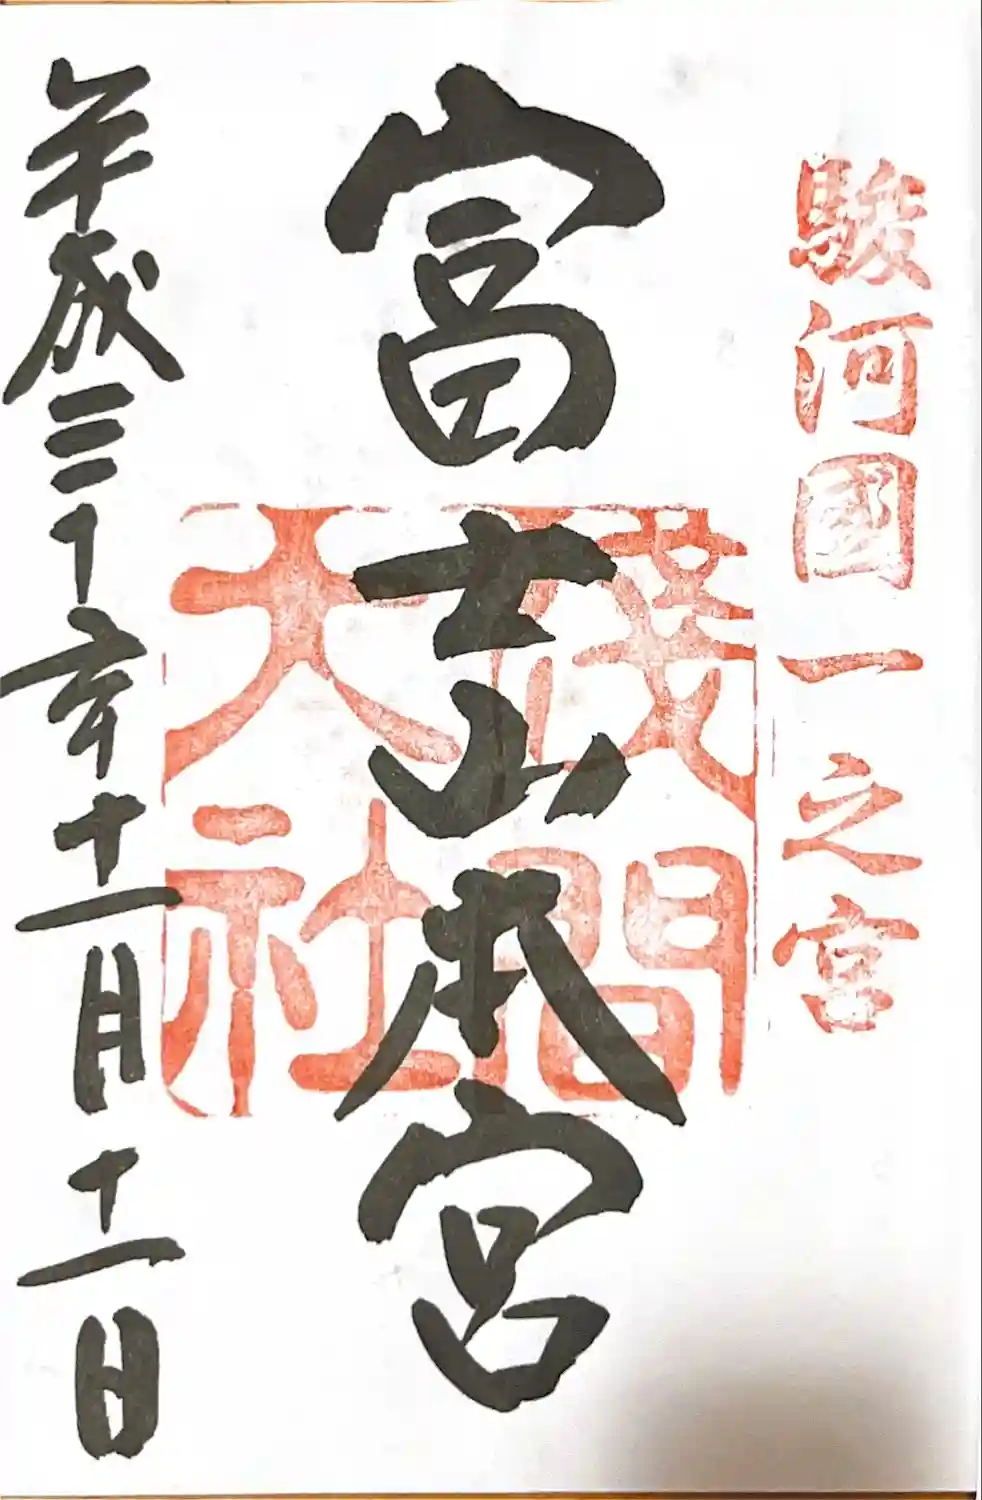 駿河國一之宮
富士山本宮
淺間
大社
平成三十年十一月十一日